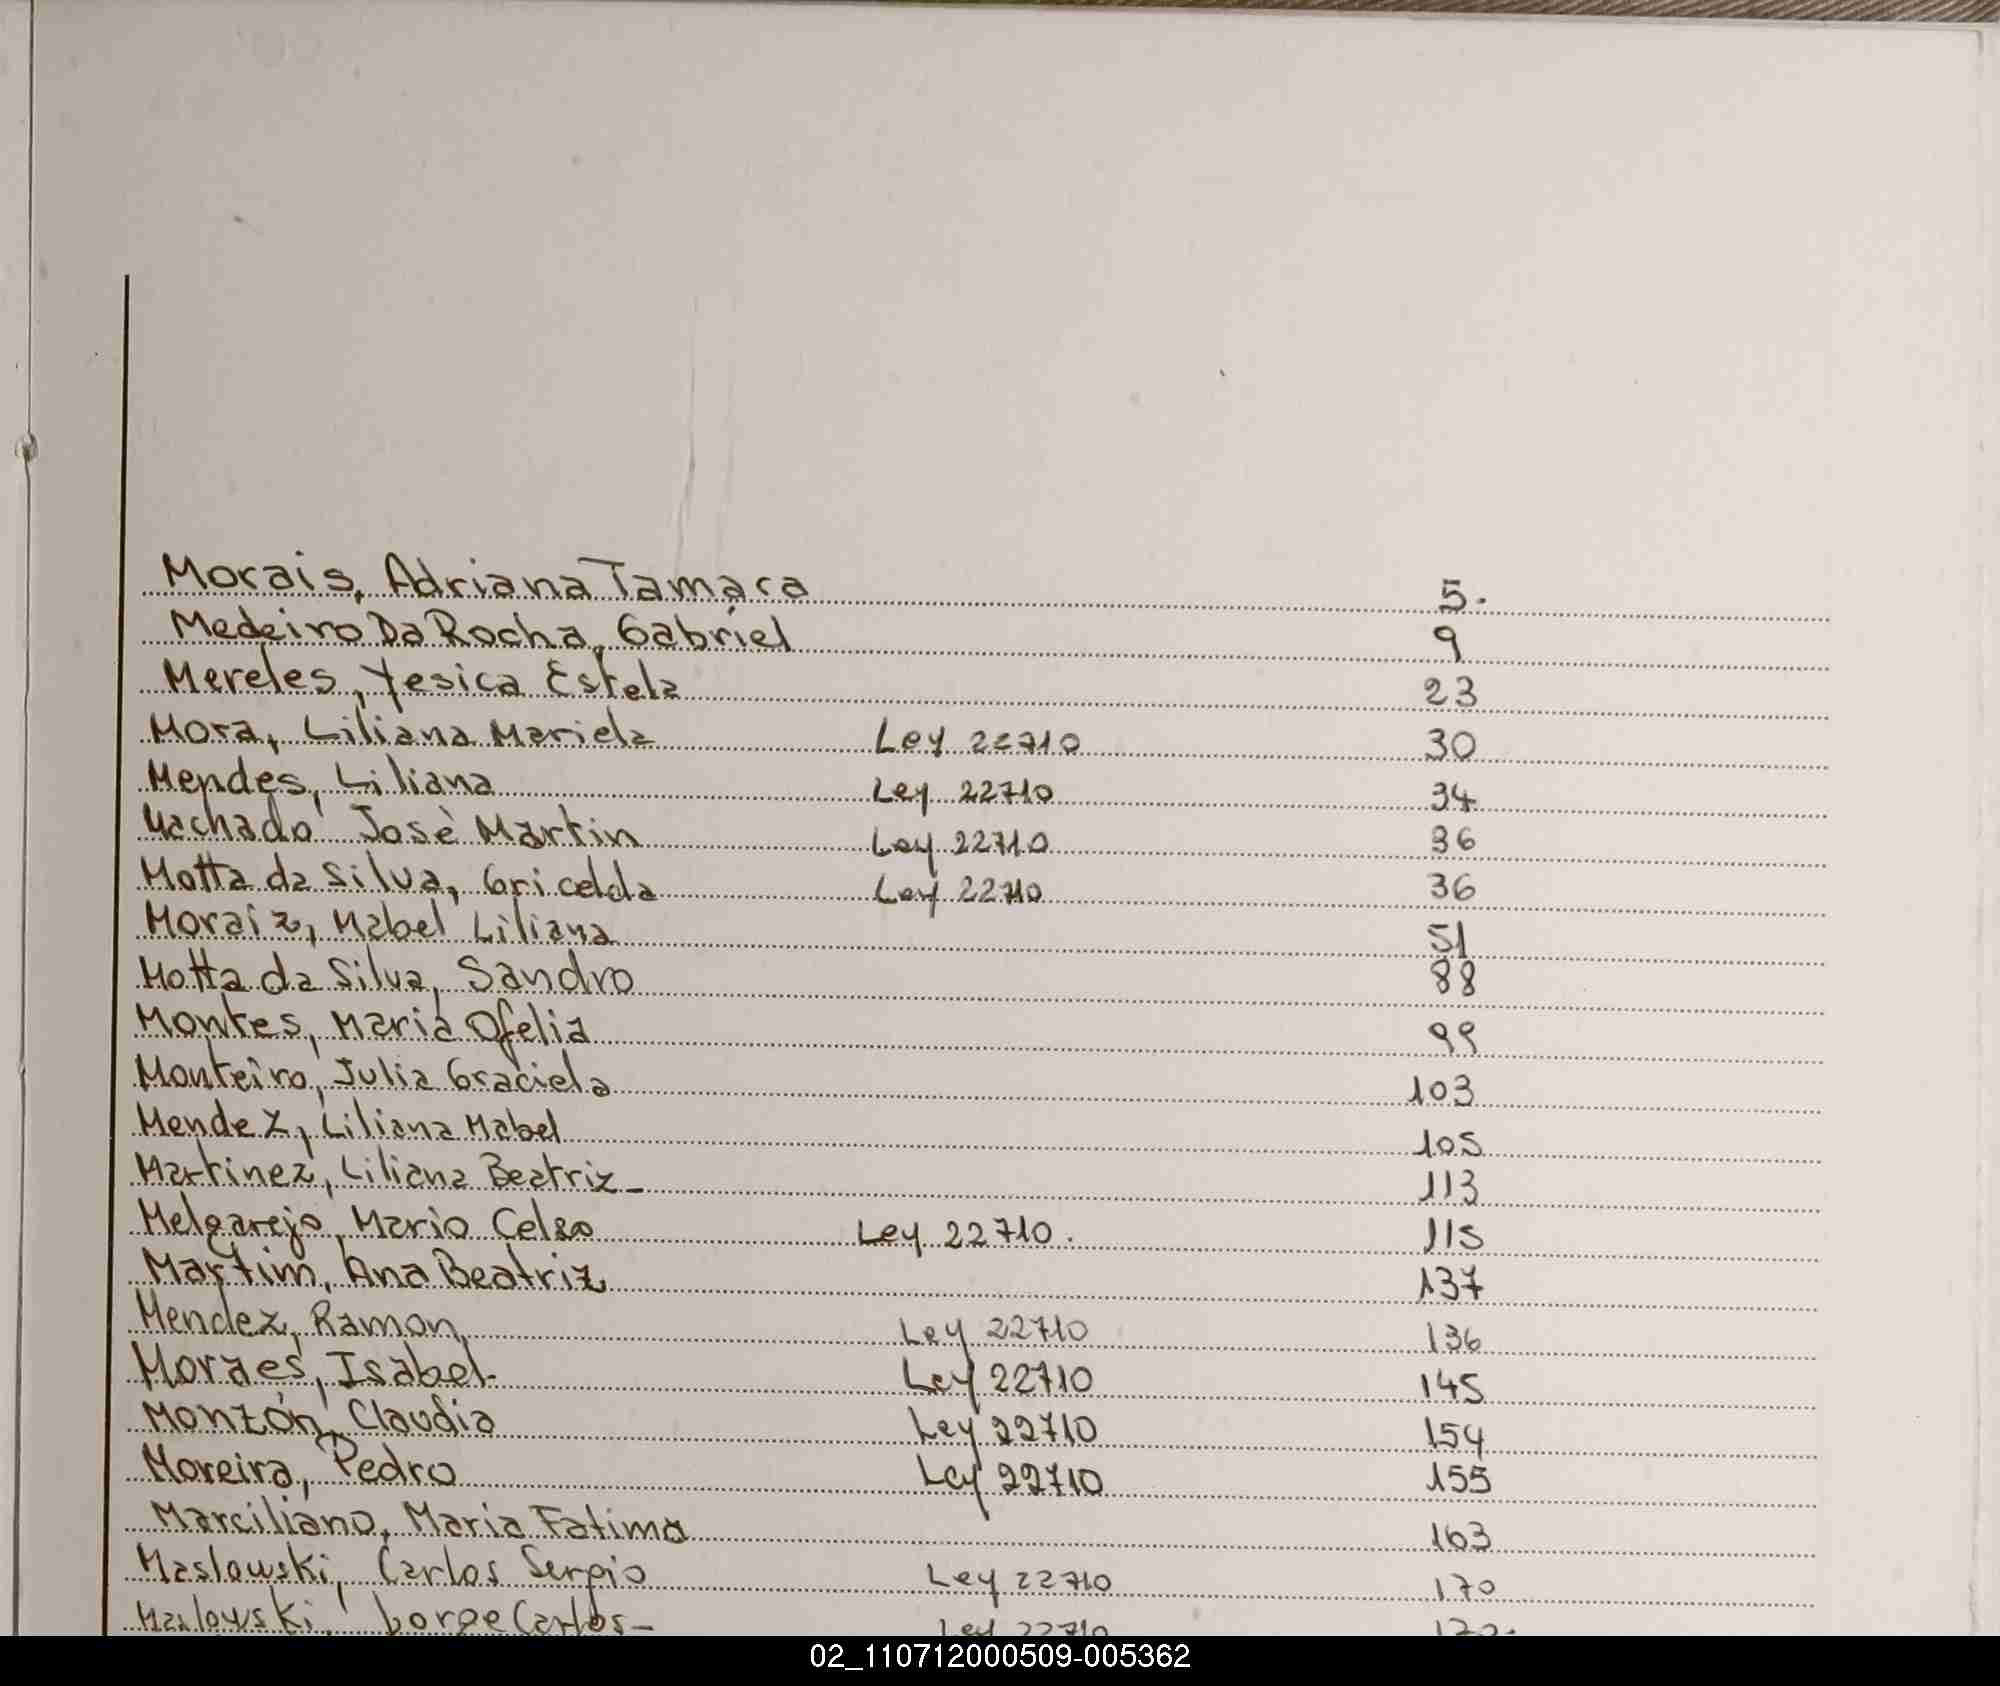 Morais, Adriana Tamara 5.
Medeiro Da Rocha, Gabriel 9
Mereles, Yesica Estela 23
Mora, Liliana Mariela Ley 22710 30
Mendes, Liliana Ley 22710 34
Machado José Martin Ley 22710 36
Motta da Silva, Gricelda Ley 22710 36
Moraiz, Mabel Liliana 51
Motta da Silva, Sandro 88
Montes, Maria Ofelia 99
Monteiro, Julia Graciela 103
Mendez, Liliana Mabel 105
Martinez, Liliana Beatriz- 113
Melgarejo, Mario Celso Ley 22710. 115
Martim, Ana Beatriz 137
Mendez, Ramon, Ley 22710 136
Moraes, Isabel- Ley 22710 145
Monzón, Claudia Ley 22710 154
Moreira, Pedro Ley 22710 155
Marciliano, Maria Fatima 163
Maslowski, Carlos Sergio Ley 22710 170
Maslowski, Jorge Carlos- Ley 22710
02_110712000509-005362